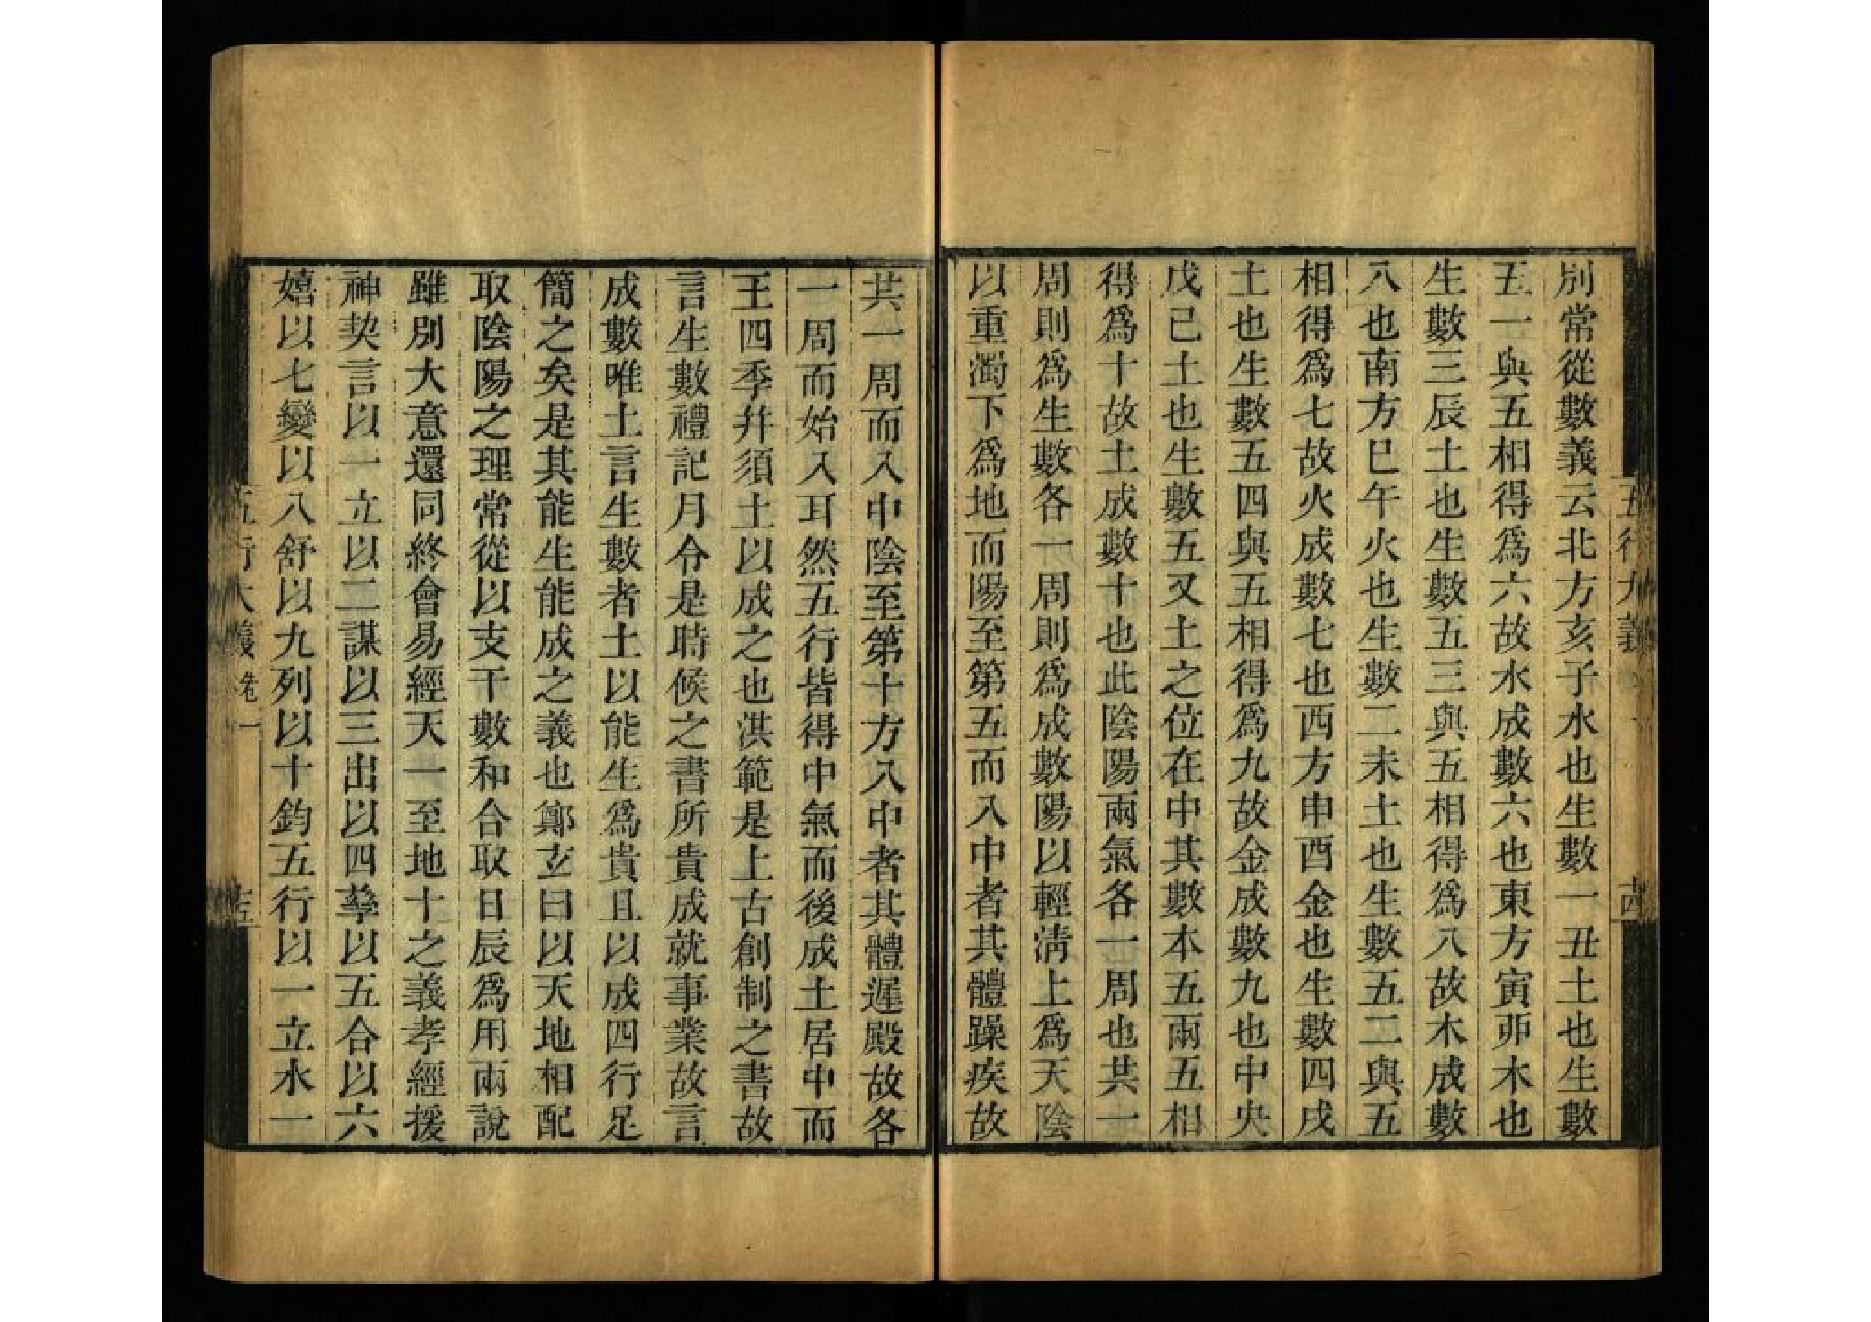 五行大義
十四
別常從數義云北方亥子水也生數一丑土也生數
五一與五相得爲六故水成數六也東方寅卯木也
生數三辰土也生數五三與五相得爲八故木成數
八也南方巳午火也生數二未土也生數五二與五
相得爲七故火成數七也西方申酉金也生數四戌
土也生數五四與五相得爲九故金成數九也中央
戊己土也生數五又土之位在中其數本五兩五相
得爲十故土成數十也此陰陽兩氣各一周也共一
周則爲生數各一周則爲成數陽以輕淸上爲天陰
以重濁下爲地而陽至第五而入中者其體躁疾故
共一周而入中陰至第十方入中者其體遲殿故各
一周而始入耳然五行皆得中氣而後成土居中而
王四季幷須土以成之也洪範是上古創制之書故
言生數禮記月令是時候之書所貴成就事業故言
成數唯土言生數者土以能生爲貴且以成四行足
簡之矣是其能生能成之義也鄭玄曰以天地相配
取陰陽之理常從以支干數和合取日辰爲用兩說
雖別大意還同終會易經天一至地十之義孝經援
神契言以一立以二謀以三出以四孳以五合以六
嬉以七變以八舒以九列以十鈞五行以一立水一
五行大義 卷一
十五